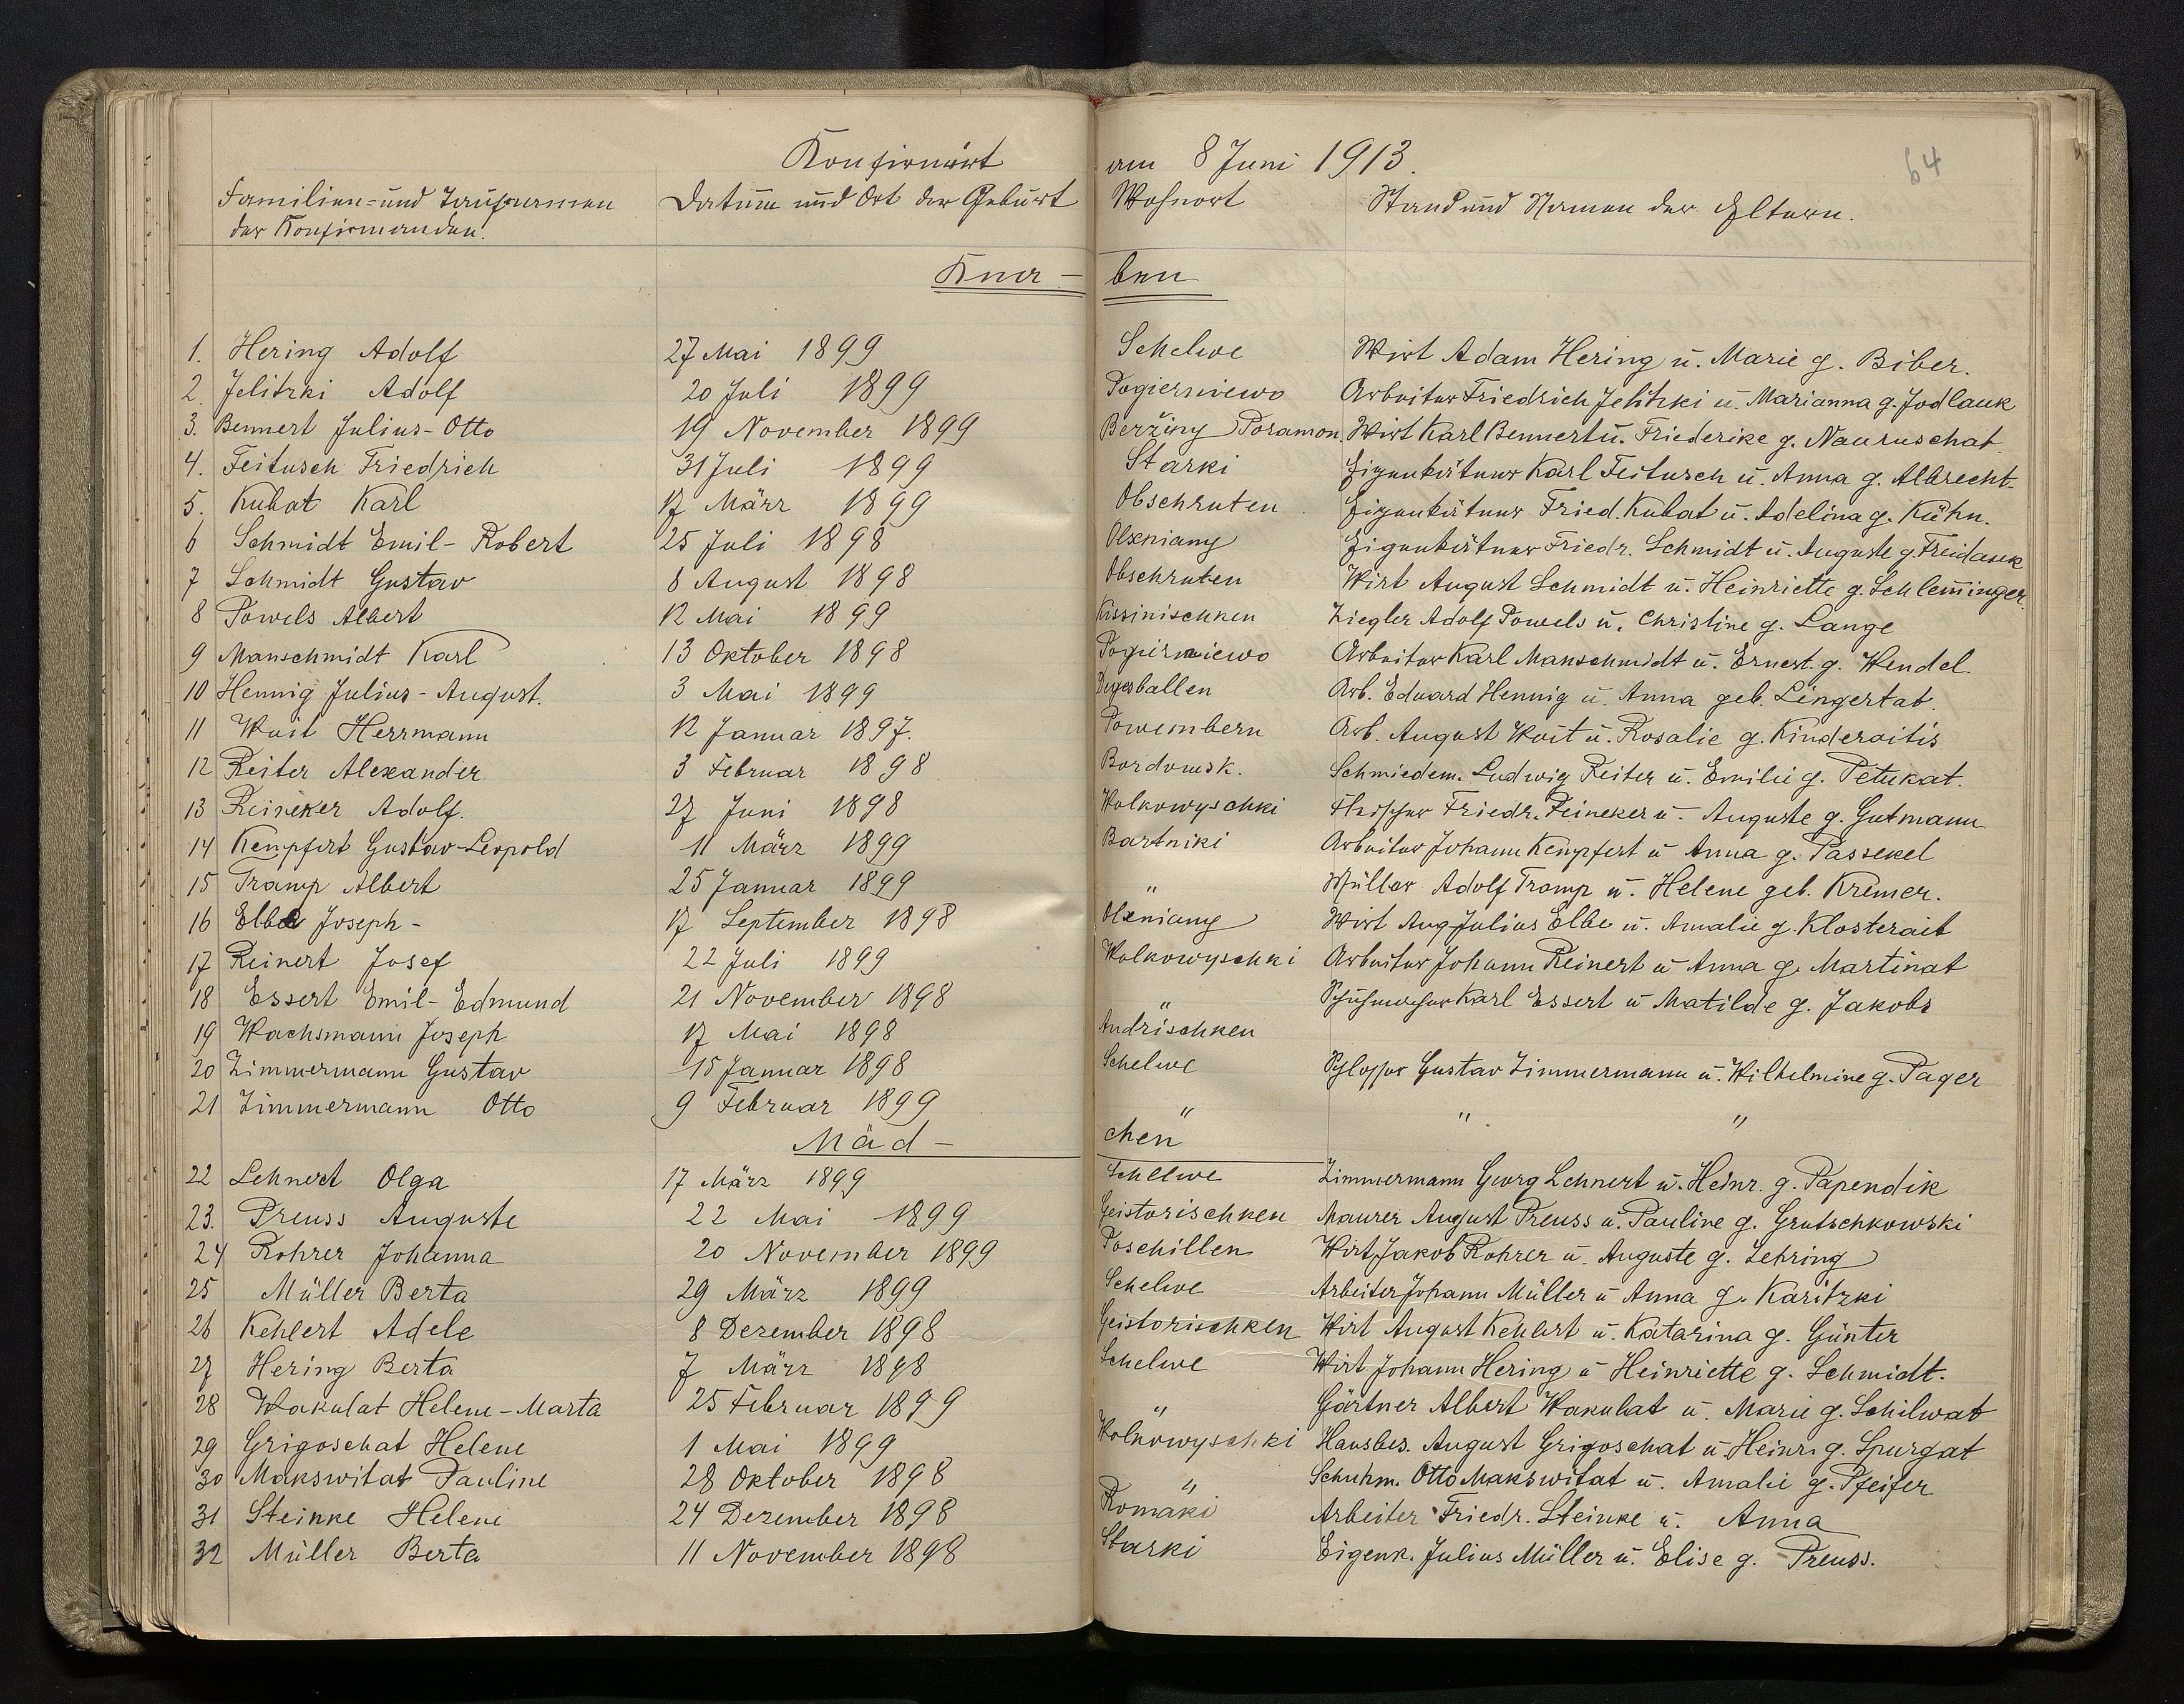 Konfirmirt am 8 Juni 1913.
64
Familien= und Taufnamen der Konfirmanden. Datum und Ort der Geburt Wohnort Stand und Namen der Eltern.
Kna- ben
1. Hering Adolf 27 Mai 1899 Schelwe Wirt Adam Hering u. Marie g. Biber.
2. Jelitzki Adolf 20 Juli 1899 Pogierniewo Arbeiter Friedrich Jelitzki u. Marianna g. Jodlauk
3. Bennert Julius-Otto 19 November 1899 Beržiny Poramon. Wirt Karl Bennert u. Friederike g. Nauruschat.
4. Feitusch Friedrich 31 Juli 1899 Starki Eigenkätner Karl Feitusch u. Anna g. Albrecht.
5. Kubat Karl 17 März 1899 Obschruten Eigenkätner Fried. Kubat u. Adelina g. Kühn.
6 Schmidt Emil-Robert 25 Juli 1898 Olxniany Eigenkätner Friedr. Schmidt u. Auguste g. Freidank
7 Schmidt Gustav 8 August 1898 Obschruten Wirt August Schmidt u. Heinriette g. Schlem̄inger.
8 Powels Albert 12 Mai 1899 Kissinischken Ziegler Adolf Powels u. Christine g. Lange
9 Manschmidt Karl 13 Oktober 1898 Pogierniewo Arbeiter Karl Manschmidt u. Ernest. g. Wendel.
10 Hennig Julius-August. 3 Mai 1899 Arb. Eduard Hennig u. Anna geb. Lingertat.
11 Wait Herrmann 12 Januar 1897. Powembern Arb. August Wait u. Rosalie g. Kinderaitis
12 Reiter Alexander 3 Februar 1898 Bordowsk. Schmiedem. Ludwig Reiter u. Emilie g. Petukat.
13 Reineker Adolf. 27 Juni 1898 Wolkowyschki Fleischer Friedr. Reineker u. Auguste g. Gutmann
14 Kempfert Gustav-Leopold 11 März 1899 Bartniki Arbeiter Johann Kempfert u Anna g. Passekel
15 Tramp Albert 25 Januar 1899 " Müller Adolf Tramp u. Helene geb. Kremer.
16 Elbe Joseph- 17 September 1898 Olxniany Wirt Aug. Julius Elbe u. Amalie g. Klosterait
17 Reinert Josef 22 Juli 1899 Wolkowyschki Arbeiter Johann Reinert u Anna g. Martinat
18 Essert Emil-Edmund 21 November 1898 " Schuhmacher Karl Essert u Matilde g. Jakobs
19 Wachsmann Joseph 17 Mai 1898 Andrischken
20 Zimmermann Gustav 15 Januar 1898 Schelwe Schlosser Gustav Zimmermann u. Wilhelmine g. Pager
21 Zimmermann Otto 9 Februar 1899 " " "
Mäd- chen
22 Lehnert Olga 17 März 1899 Schelwe Zimmermann Georg Lehnert u. Heinr. g. Papendik
23. Preuss Auguste 22 Mai 1899 Geistorischken Maurer August Preuss u. Pauline g. Grutschkowski
24 Rohrer Johanna 20 November 1899 Poschillen Wirt Jakob Rohrer u. Auguste g. Lehring
25 Müller Berta 29 März 1899 Schelwe Arbeiter Johann Müller u Anna g. Karitzki
26 Kehlert Adele 8 Dezember 1898 Geistorischken Wirt August Kehlert u. Katarina g. Günter
27 Hering Berta 7 März 1898 Schelwe Wirt Johann Hering u Heinriette g. Schmidt.
28 Wakulat Helene-Marta 25 Februar 1899 " Gärtner Albert Wakulat u. Marie g. Schilwat
29 Grigoschat Helene 1 Mai 1899 Wolkowyschki Hausbes. August Grigoschat u Heinr. g. Spurgat
30 Makswitat Pauline 28 Oktober 1898 " Schuhm. Otto Makswitat u. Amalie g. Pfeifer
31 Steinke Helene 24 Dezember 1898 Romaki Arbeiter Friedr. Steinke u. Anna
32 Müller Berta 11 November 1898 Starki Eigenk. Julius Müller u. Elise g. Preuss.